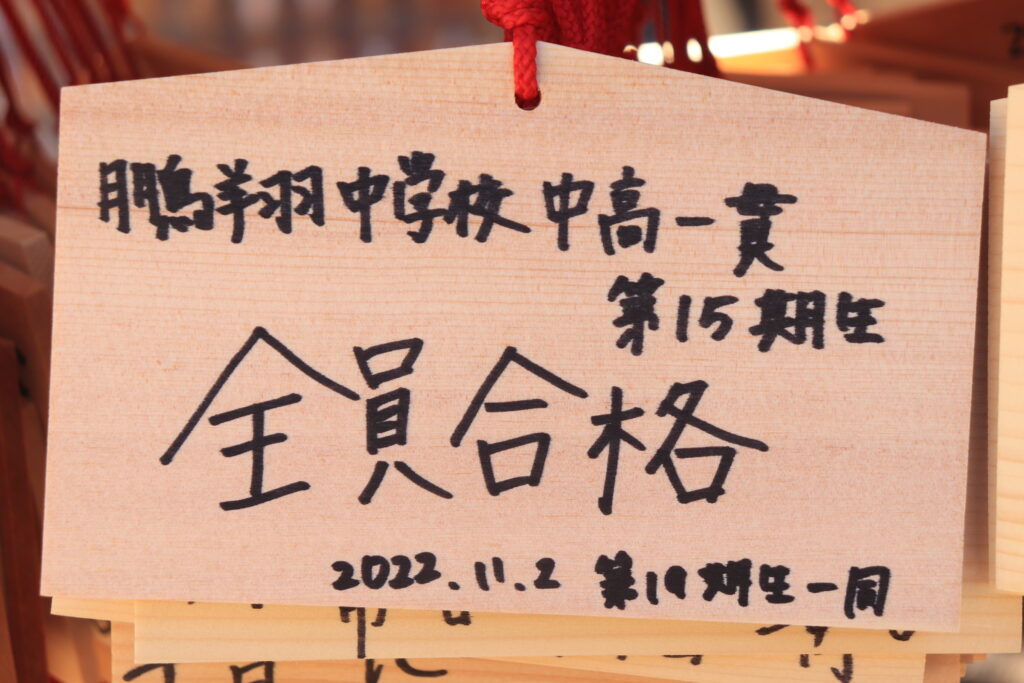 鵬翔中学校 中高一貫
第15期生
全員合格
2022.11.2 第19期生一同